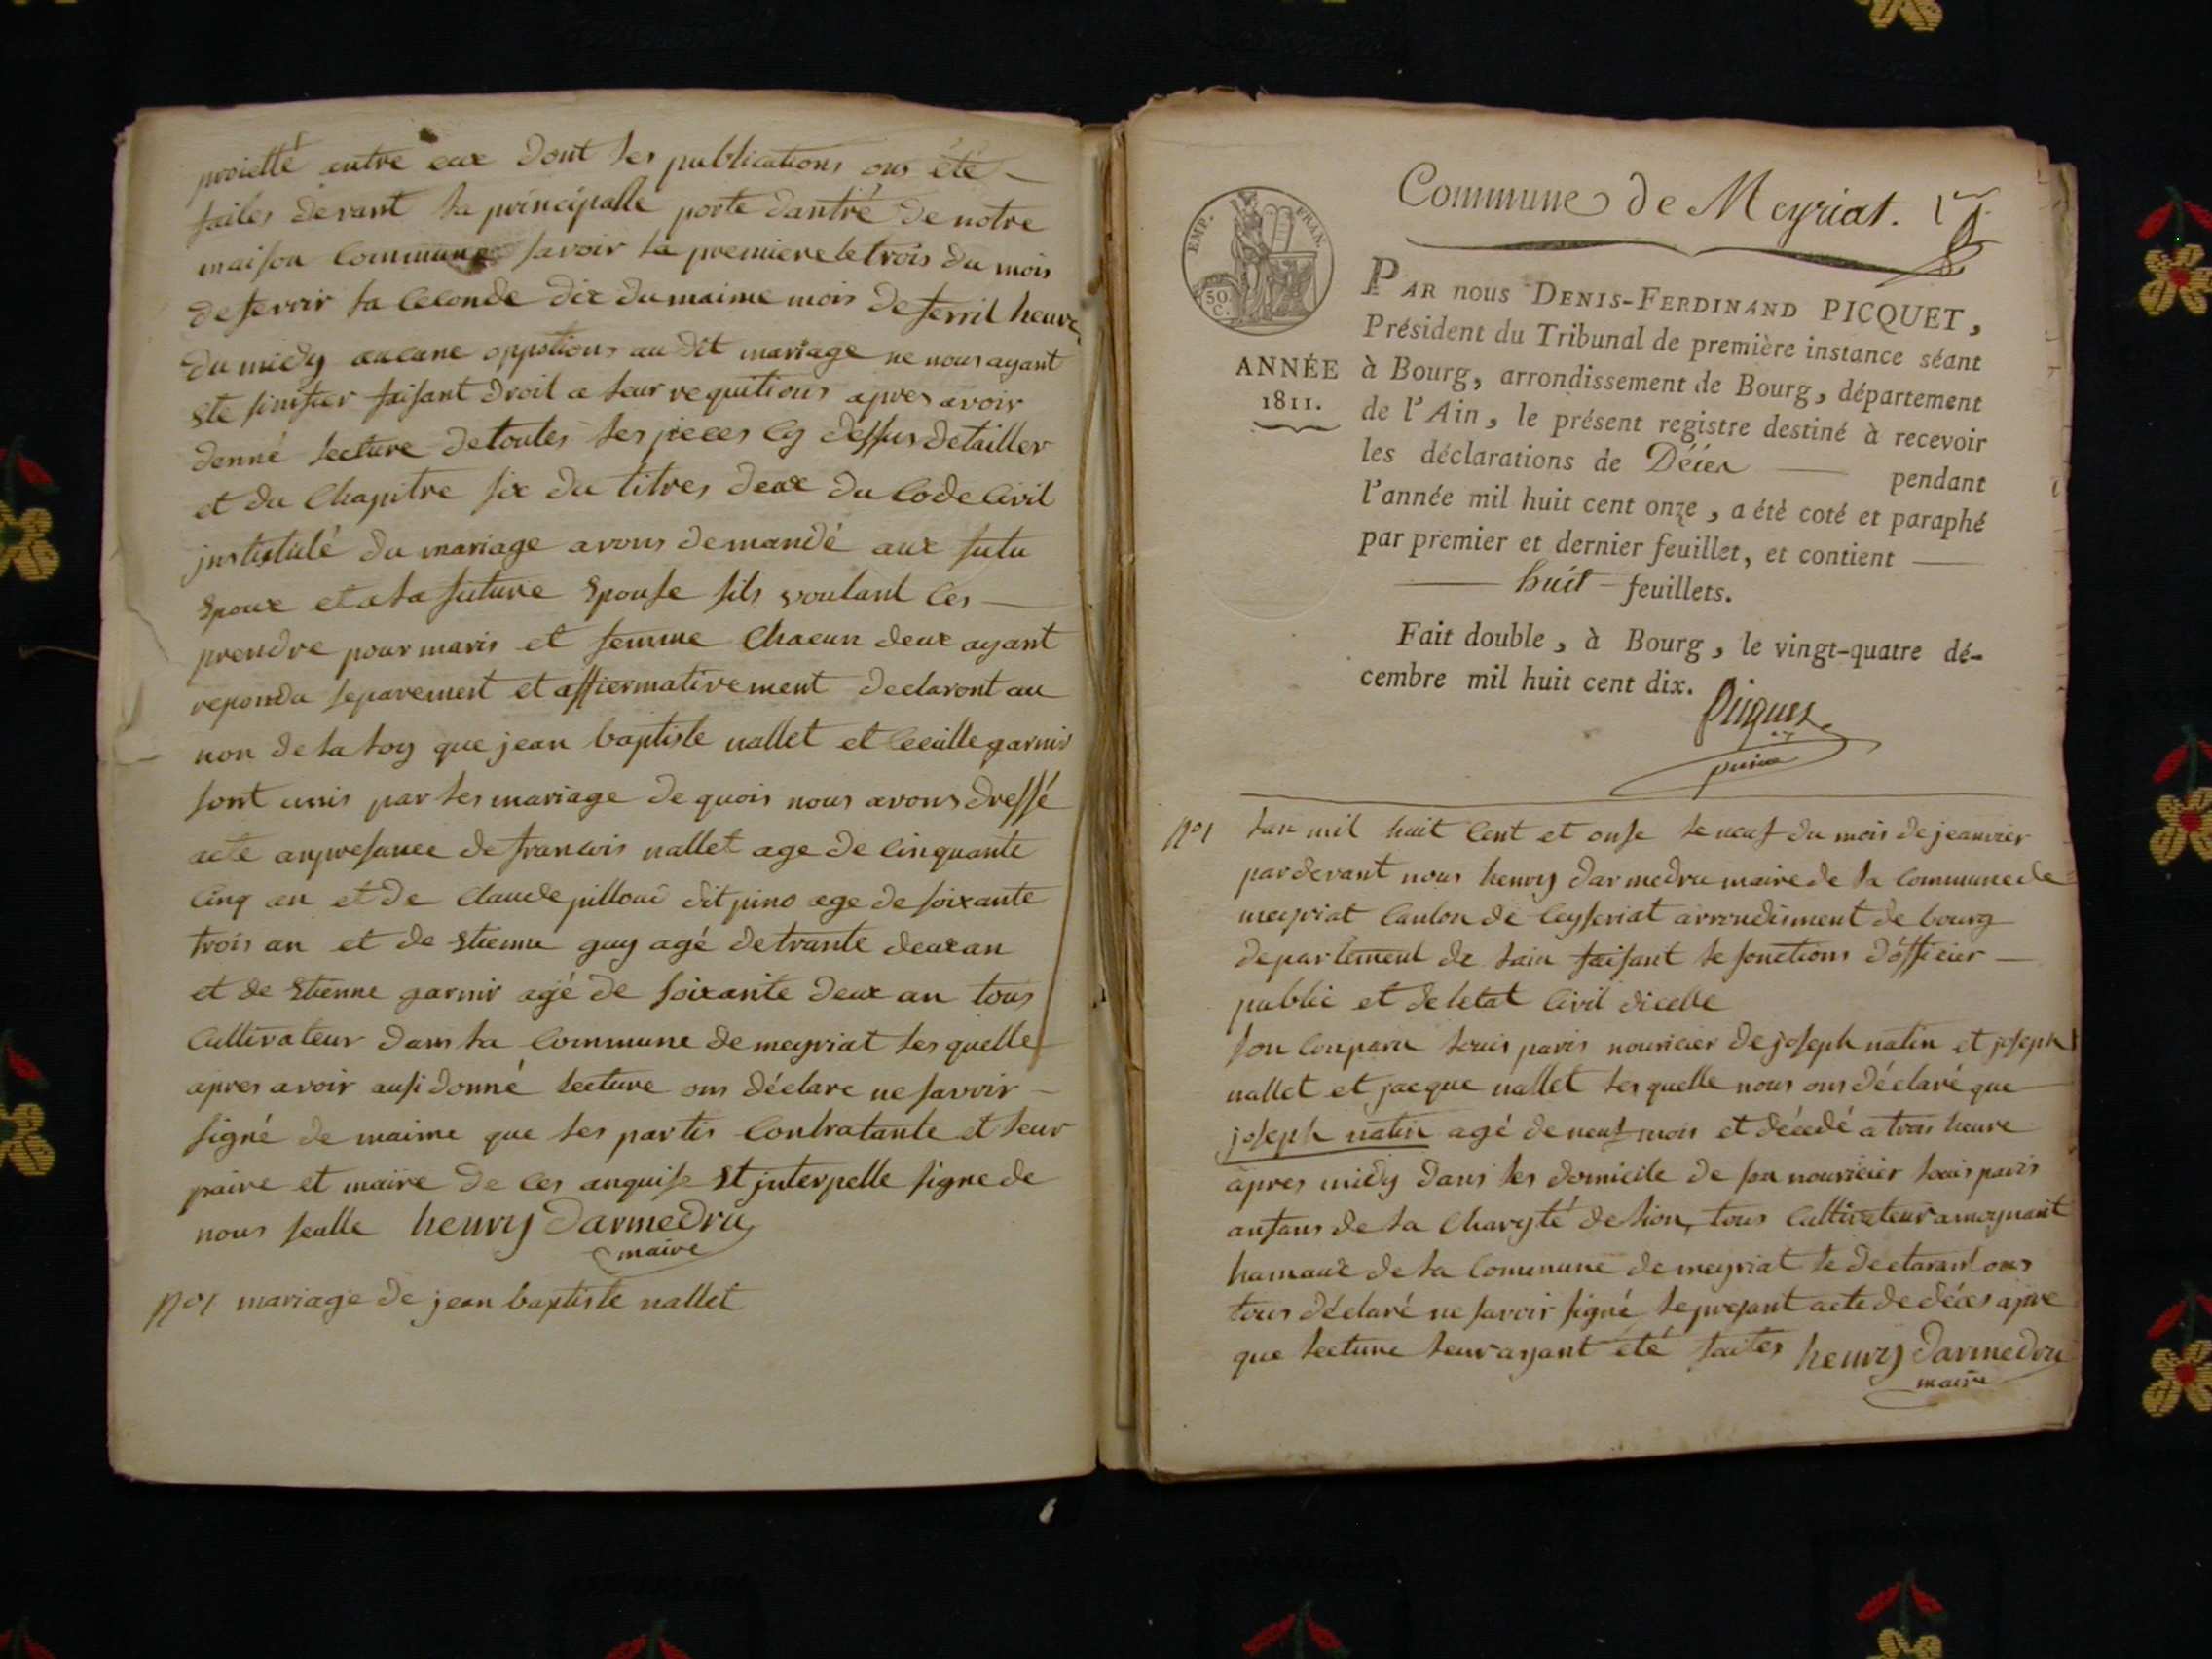 proietté entre eux dont les publications ons été
faites devant la principalle porte dantré de notre
maison commune savoir la premiere le trois du mois
de fevrir la seconde dix du maime mois de fevril heure
du midy aucune oppotions au dit mariage ne nous ayant
ete sinifier faisant droit a leur requitions apres avoir
denné lecture de toutes les pieces cy dessus detailler
et du chapitre six du titres deux du code civil
justutulé du mariage avons demandé aux futu
epoux et a la future epouse sils voulant ces
prendre pour maris et femme chacun deux ayant
repondu separement et affiermativement declaront au
non de la loy que jean baptiste nallet et cecille garnir
sont unis par les mariage de quois nous avons dressé
acte anpresance de francois nallet age de cinquante
cinq an et de claude pilloud dit pino age de soixante
trois an et de etienne guy agé de trante deux an
et de etienne garnir agé de soixante deux an tous
cultivateur dans la commune de meyriat les quelle
apres avoir ausi donné lecture ons déclare ne savoir
signé de maime que les partis contratante et leur
paire et maire de ces anquise et interpelle signe de
nous sealle henry Darmedru
maire
No 1 mariage de jean baptiste nallet
Commune de Meyriat.
EMP. FRAN.
50 C.
ANNÉE
1811.
PAR nous DENIS-FERDINAND PICQUET,
Président du Tribunal de première instance séant
à Bourg, arrondissement de Bourg, département
de l'Ain, le présent registre destiné à recevoir
les déclarations de Décès pendant
l'année mil huit cent onze, a été coté et paraphé
par premier et dernier feuillet, et contient
huit feuillets.
Fait double, à Bourg, le vingt-quatre dé-
cembre mil huit cent dix.
Picquet
No 1 lan mil huit cent et onse le neuf du mois de jeanvier
par devant nous henry darmedru maire de la commune de
meyriat canton de ceyseriat arrondisment de bourg
departement de lain faisant le fonctions d'officier
public et de letat civil dicelle
son conparu louis paris nouricier de joseph natin et joseph
nallet et jacque nallet les quelle nous ons déclaré que
joseph natin agé de neuf mois et décedé a trois heure
apres midy dans les domicile de son nouricier louis paris
anfans de la charyté de lion, tous cultivateur amoynant
hamaux de la commune de meyriat le declarant ons
tous déclaré ne savoir signé le presant acte de déces apre
que lecture leur ayant été faites henry Darmedru
maire